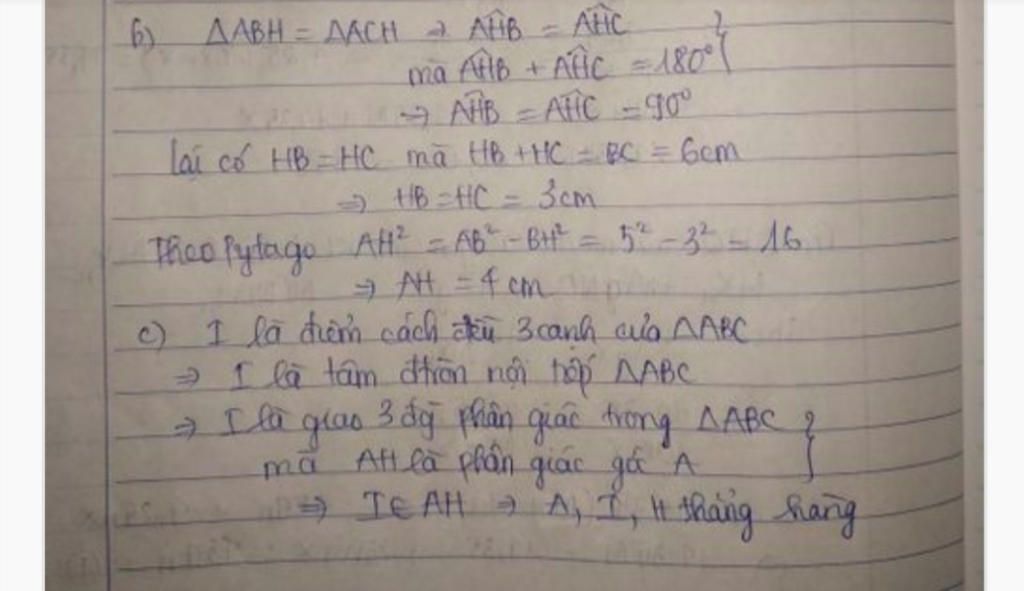 b) ΔABH = ΔACH → AĤB = AĤC
mà AĤB + AĤC = 180°
⇒ AĤB = AĤC = 90°
lại có HB = HC mà HB + HC = BC = 6cm
⇒ HB = HC = 3cm
Theo Pytago AH² = AB² - BH² = 5² - 3² = 16
⇒ AH = 4 cm
c) I là điểm cách đều 3 cạnh của ΔABC
⇒ I là tâm đtròn nội tiếp ΔABC
⇒ I là giao 3 đg phân giác trong ΔABC
mà AH là phân giác góc A
⇒ I ∈ AH → A, I, H thẳng hàng